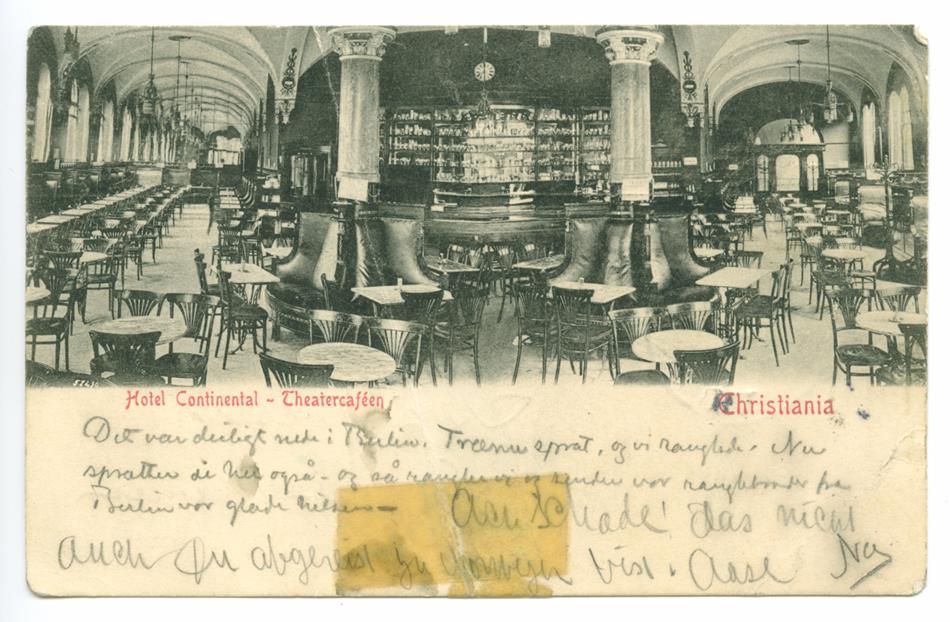 5241
Hotel Continental - Theatercaféen
Christiania
Det var deiligt nede i Berlin. Træerne sprat, og vi ranglede. Nu
spratter de her også - og så rangler vi og sender vor ranglebroder fra
Berlin vor glade hilsen —
Ach Schade! das nicht
auch Du abgereist zu Norwegen bist. Aase